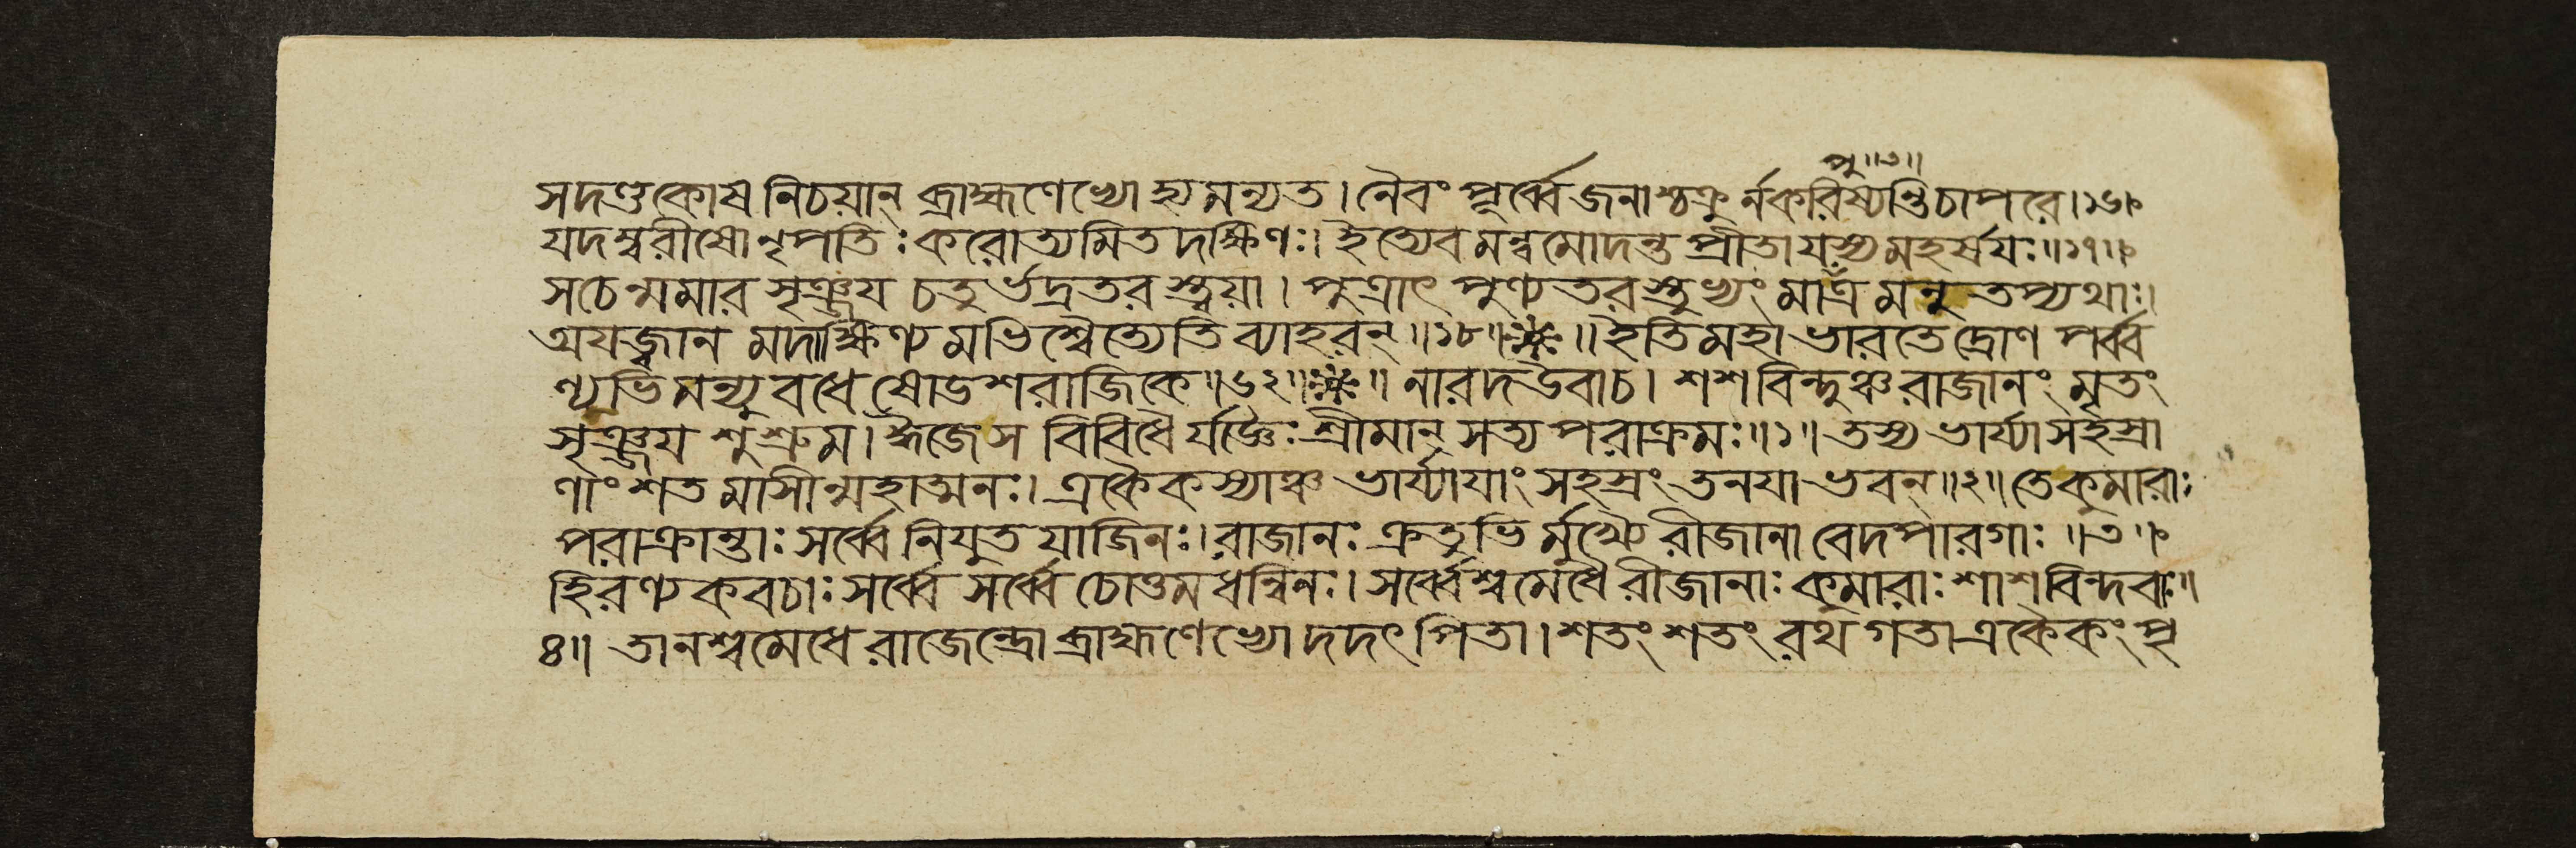 পু॥৩॥
সদণ্ডকোষনিচয়ান্ ব্রাহ্মণেভ্যোহ্যমন্যত। নৈবং পূর্ব্বেজনাশ্চক্রুর্নকরিষ্যন্তিচাপরে।১৬।
যদম্বরীষোনৃপতিঃ করোত্যমিতদক্ষিণঃ। ইত্যেবমন্বমোদন্ত প্রীতাযস্যমহর্ষয়ঃ॥১৭॥
সচেন্মমারসৃঞ্জয চতুর্ভদ্রতরস্ত্বয়া। পুত্রাৎ পুণ্যতরস্তুভ্যং মাপুত্রমনুতপ্যথাঃ।
অযজ্বানমদাক্ষিণ্যমভিশ্বৈত্যেতিব্যাহরন্॥১৮॥ ॥ইতিমহাভারতেদ্রোণপর্ব্ব
ণ্যভিমন্যুবধে ষোডশরাজিকে॥৬২॥ ॥ নারদউবাচ। শশবিন্দুঞ্চরাজানং মৃতং
সৃঞ্জয শুশ্রুম। ঈজেস বিবিধৈর্যজ্ঞৈঃ শ্রীমান্ সত্যপরাক্রমঃ॥১॥ তস্যভার্য্যাসহস্রা
ণাং শতমাসীন্মহাত্মনঃ। একৈকস্যাঞ্চভার্য্যাযাং সহস্রং তনযাভবন্॥২॥ তেকুমারাঃ
পরাক্রান্তাঃ সর্ব্বেনিযুতযাজিনঃ। রাজানঃ ক্রতুভির্মুখ্যৈরীজানাবেদপারগাঃ॥৩॥
হিরণ্যকবচাঃ সর্ব্বে সর্ব্বেচোত্তমধন্বিনঃ। সর্ব্বেশ্বমেধৈরীজানাঃ কুমারাঃ শাশবিন্দবাঃ॥
৪॥ তানশ্বমেধেরাজেন্দ্রোব্রাহ্মণেভ্যোদদৎপিতা। শতং শতং রথগতাএকৈকং পৃ